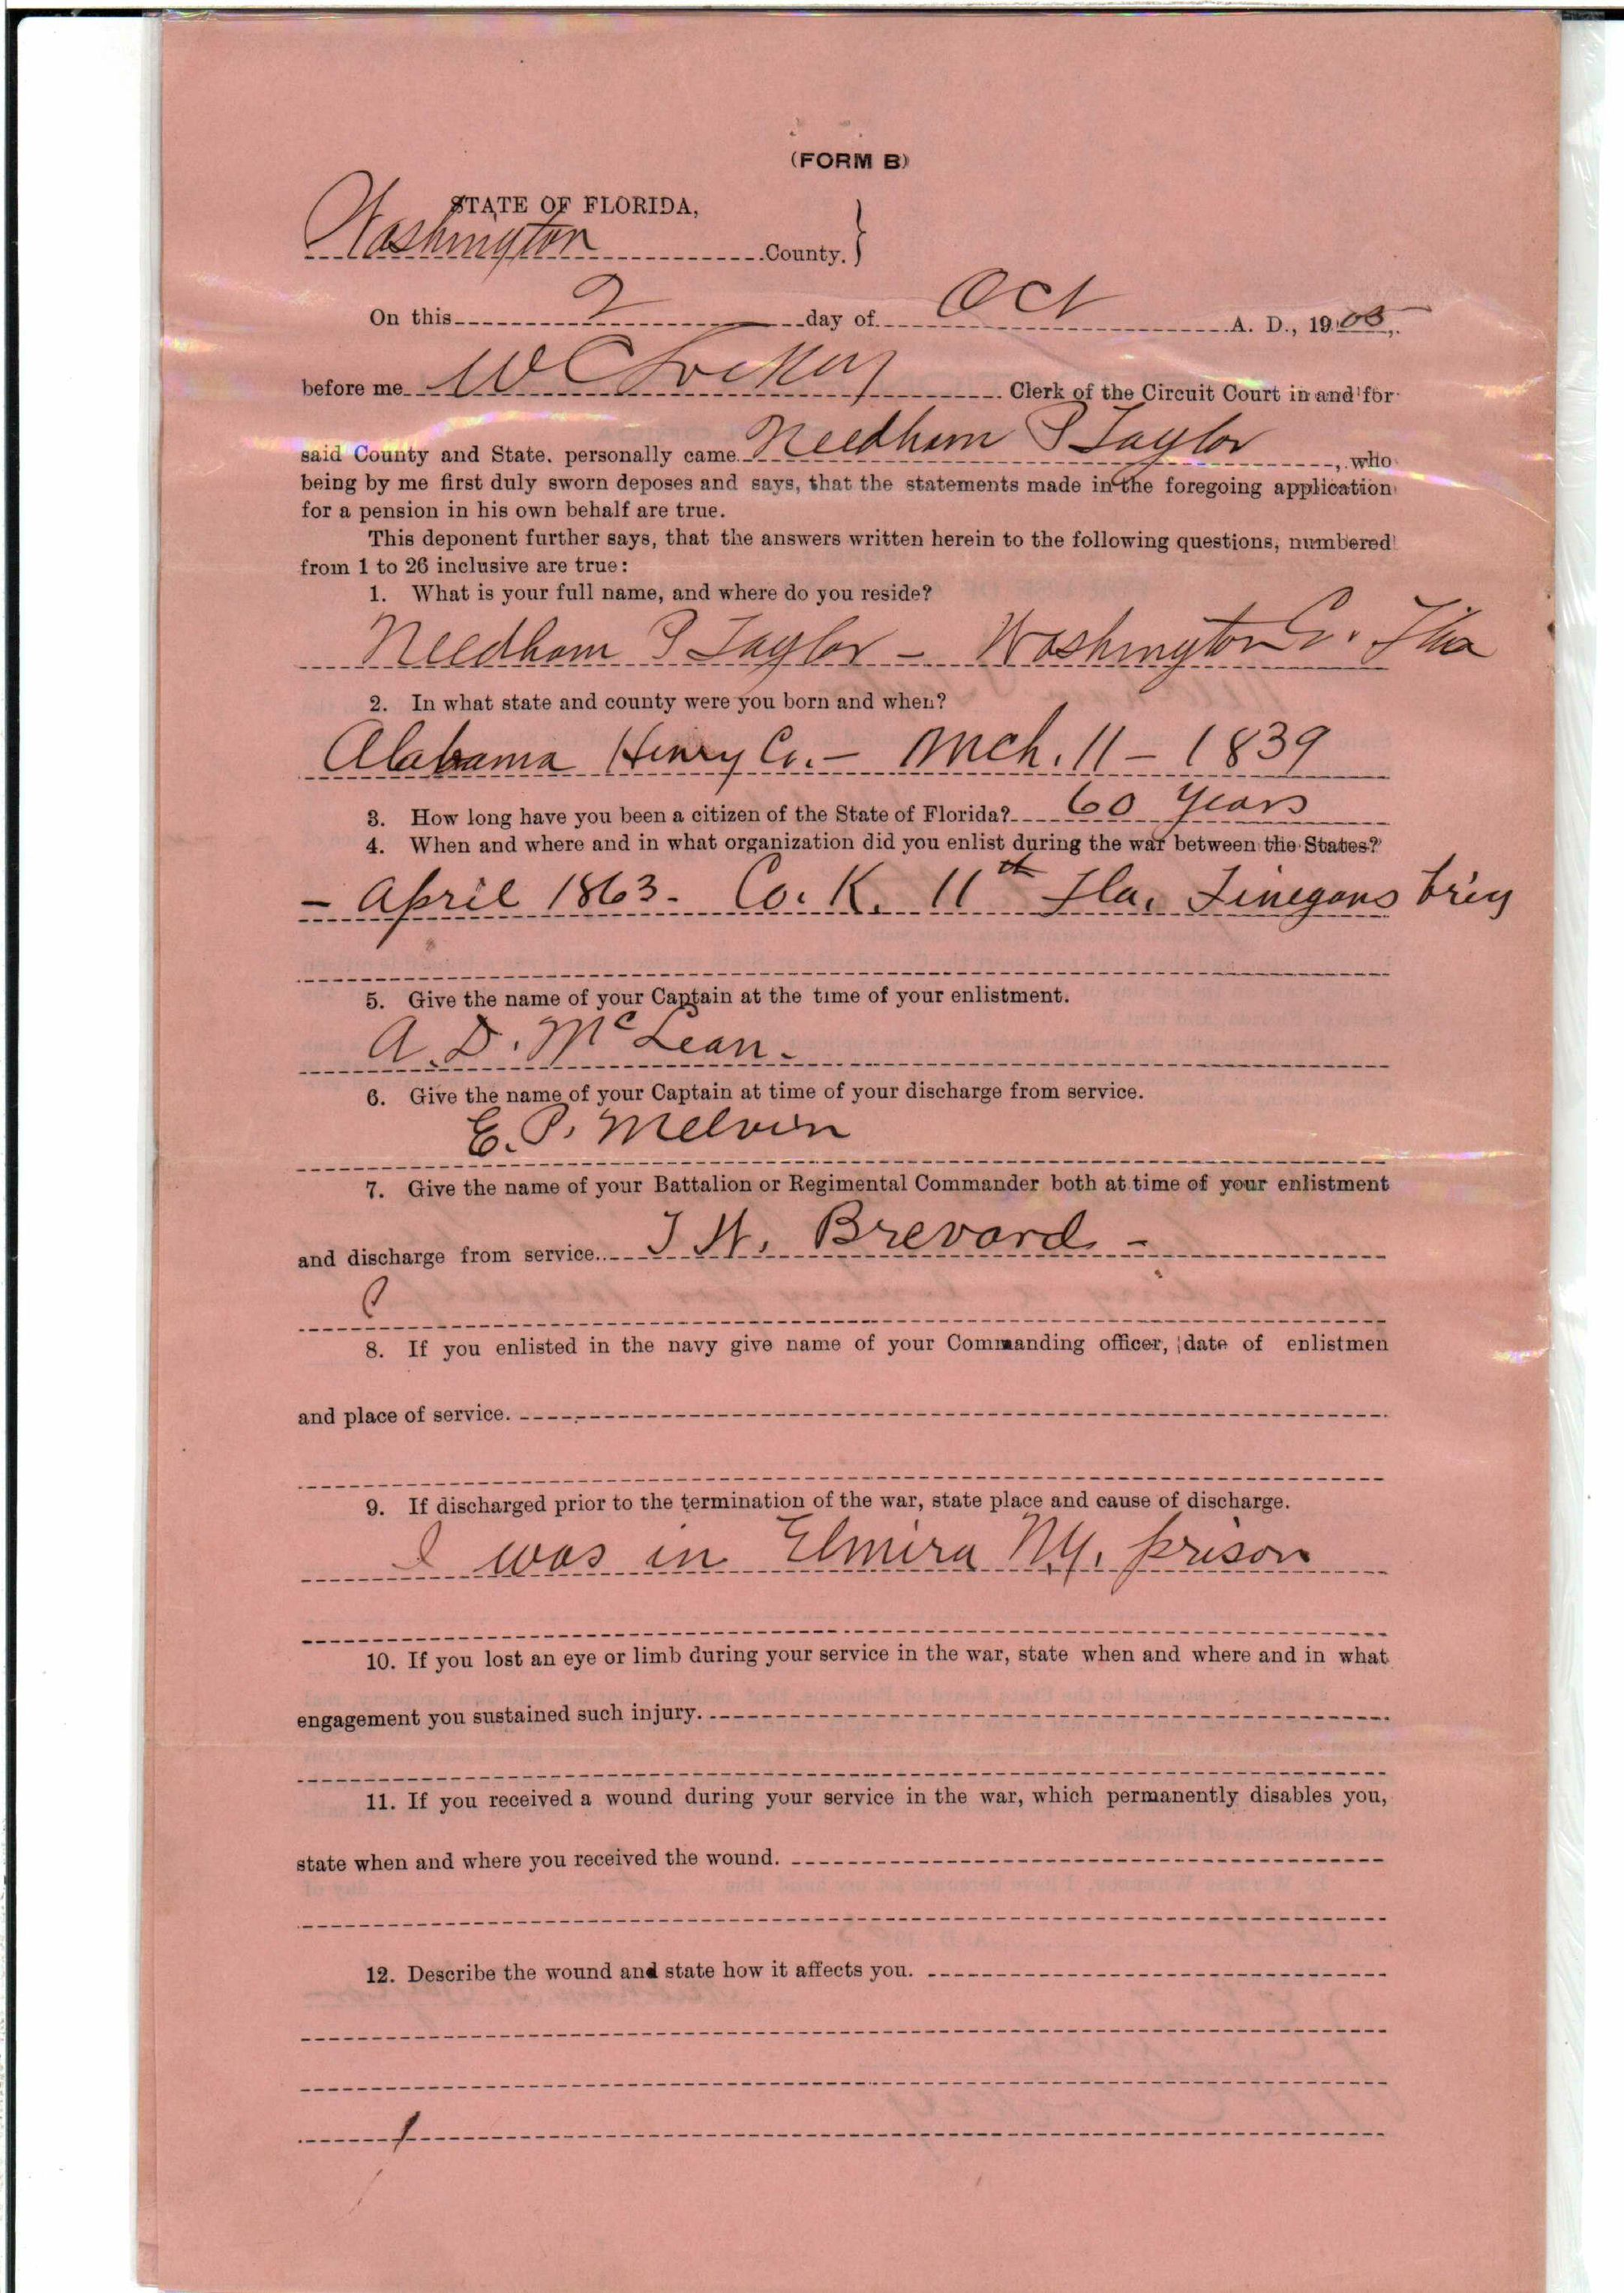 (FORM B)
STATE OF FLORIDA,
Washington County. }
On this 2 day of Oct A. D., 19
before me W C Lockey Clerk of the Circuit Court in and for
said County and State. personally came Needham P Taylor, who
being by me first duly sworn deposes and says, that the statements made in the foregoing application
for a pension in his own behalf are true.
This deponent further says, that the answers written herein to the following questions, numbered
from 1 to 26 inclusive are true:
1. What is your full name, and where do you reside?
Needham P Taylor - Washington Co. Fla
2. In what state and county were you born and when?
Alabama Henry Co. - Mch. 11 - 1839
3. How long have you been a citizen of the State of Florida? 60 years
4. When and where and in what organization did you enlist during the war between the States?
- April 1863 - Co. K. 11th Fla. Finegans brig
5. Give the name of your Captain at the time of your enlistment.
A. D. McLean -
6. Give the name of your Captain at time of your discharge from service.
E. P. Melvin
7. Give the name of your Battalion or Regimental Commander both at time of your enlistment
and discharge from service. T. W. Brevard -
8. If you enlisted in the navy give name of your Commanding officer, date of enlistmen
and place of service.
9. If discharged prior to the termination of the war, state place and cause of discharge.
I was in Elmira N.Y. prison
10. If you lost an eye or limb during your service in the war, state when and where and in what
engagement you sustained such injury.
11. If you received a wound during your service in the war, which permanently disables you,
state when and where you received the wound.
12. Describe the wound and state how it affects you.